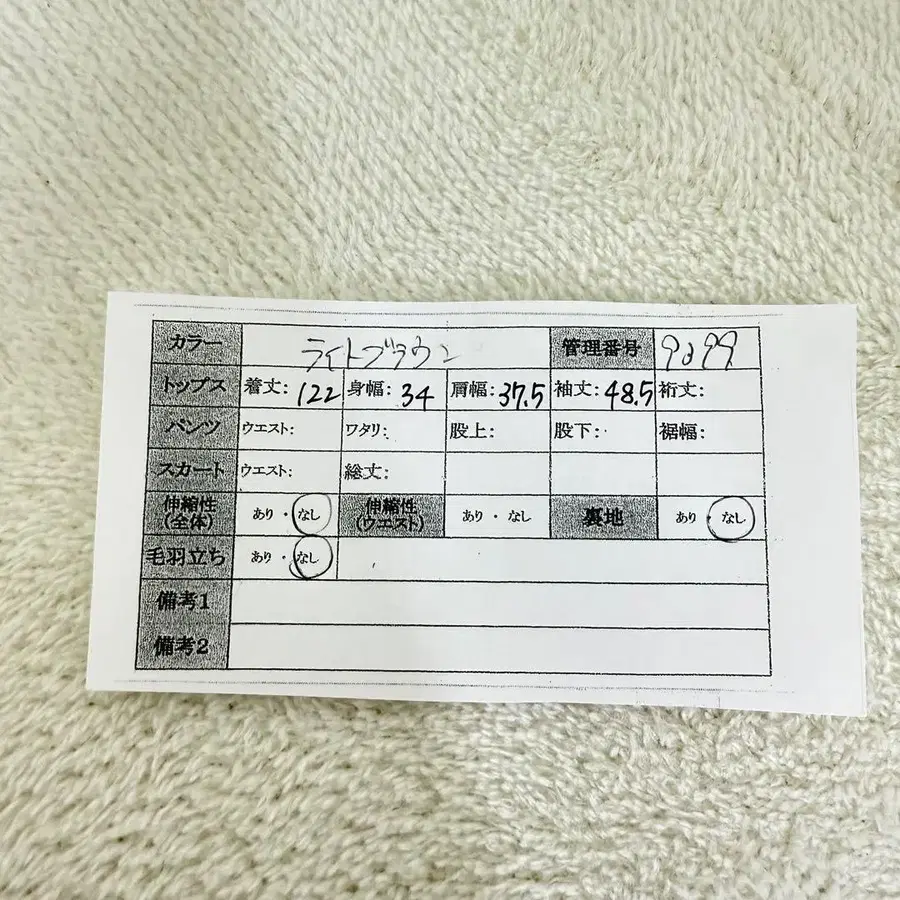 カラー ライトブラウン 管理番号
トップス 着丈: 122 身幅: 34 肩幅: 37.5 袖丈: 48.5 裄丈:
パンツ ウエスト: ワタリ: 股上: 股下: 裾幅:
スカート ウエスト: 総丈:
伸縮性(全体) あり・なし 伸縮性(ウエスト) あり・なし 裏地 あり・なし
毛羽立ち あり・なし
備考1
備考2